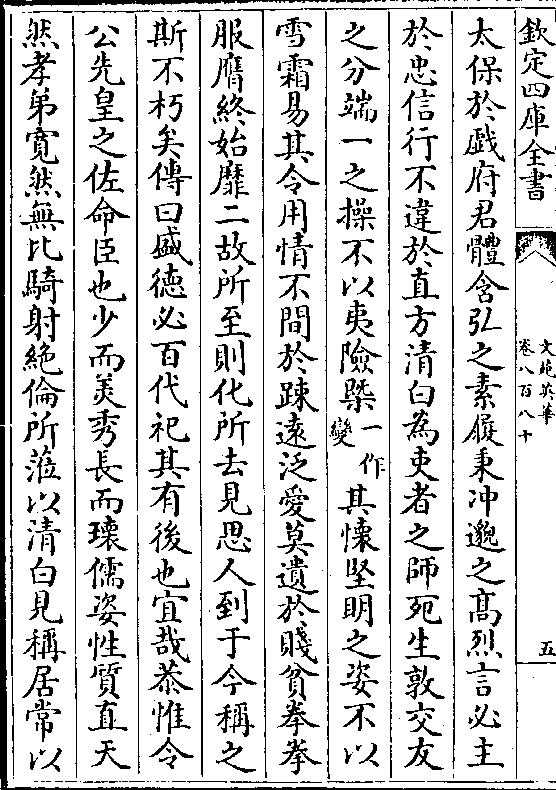 欽定四庫全書
文苑英華
卷八百八十
五
太保於戲府君體含弘之素履秉冲邈之髙烈言必主
於忠信行不違於直方清白為吏者之師死生敦交友
之分端一之操不以夷險槩一作變其懐堅明之姿不以
雪霜易其令用情不間於踈遠泛愛莫遺於賤貧拳拳
服膺終始靡二故所至則化所去見思人到于今稱之
斯不朽矣傳曰盛徳必百代祀其有後也宜哉恭惟令
公先皇之佐命臣也少而美秀長而瓌儒姿性質直天
然孝弟寛然無比騎射絶倫所蒞以清白見稱居常以